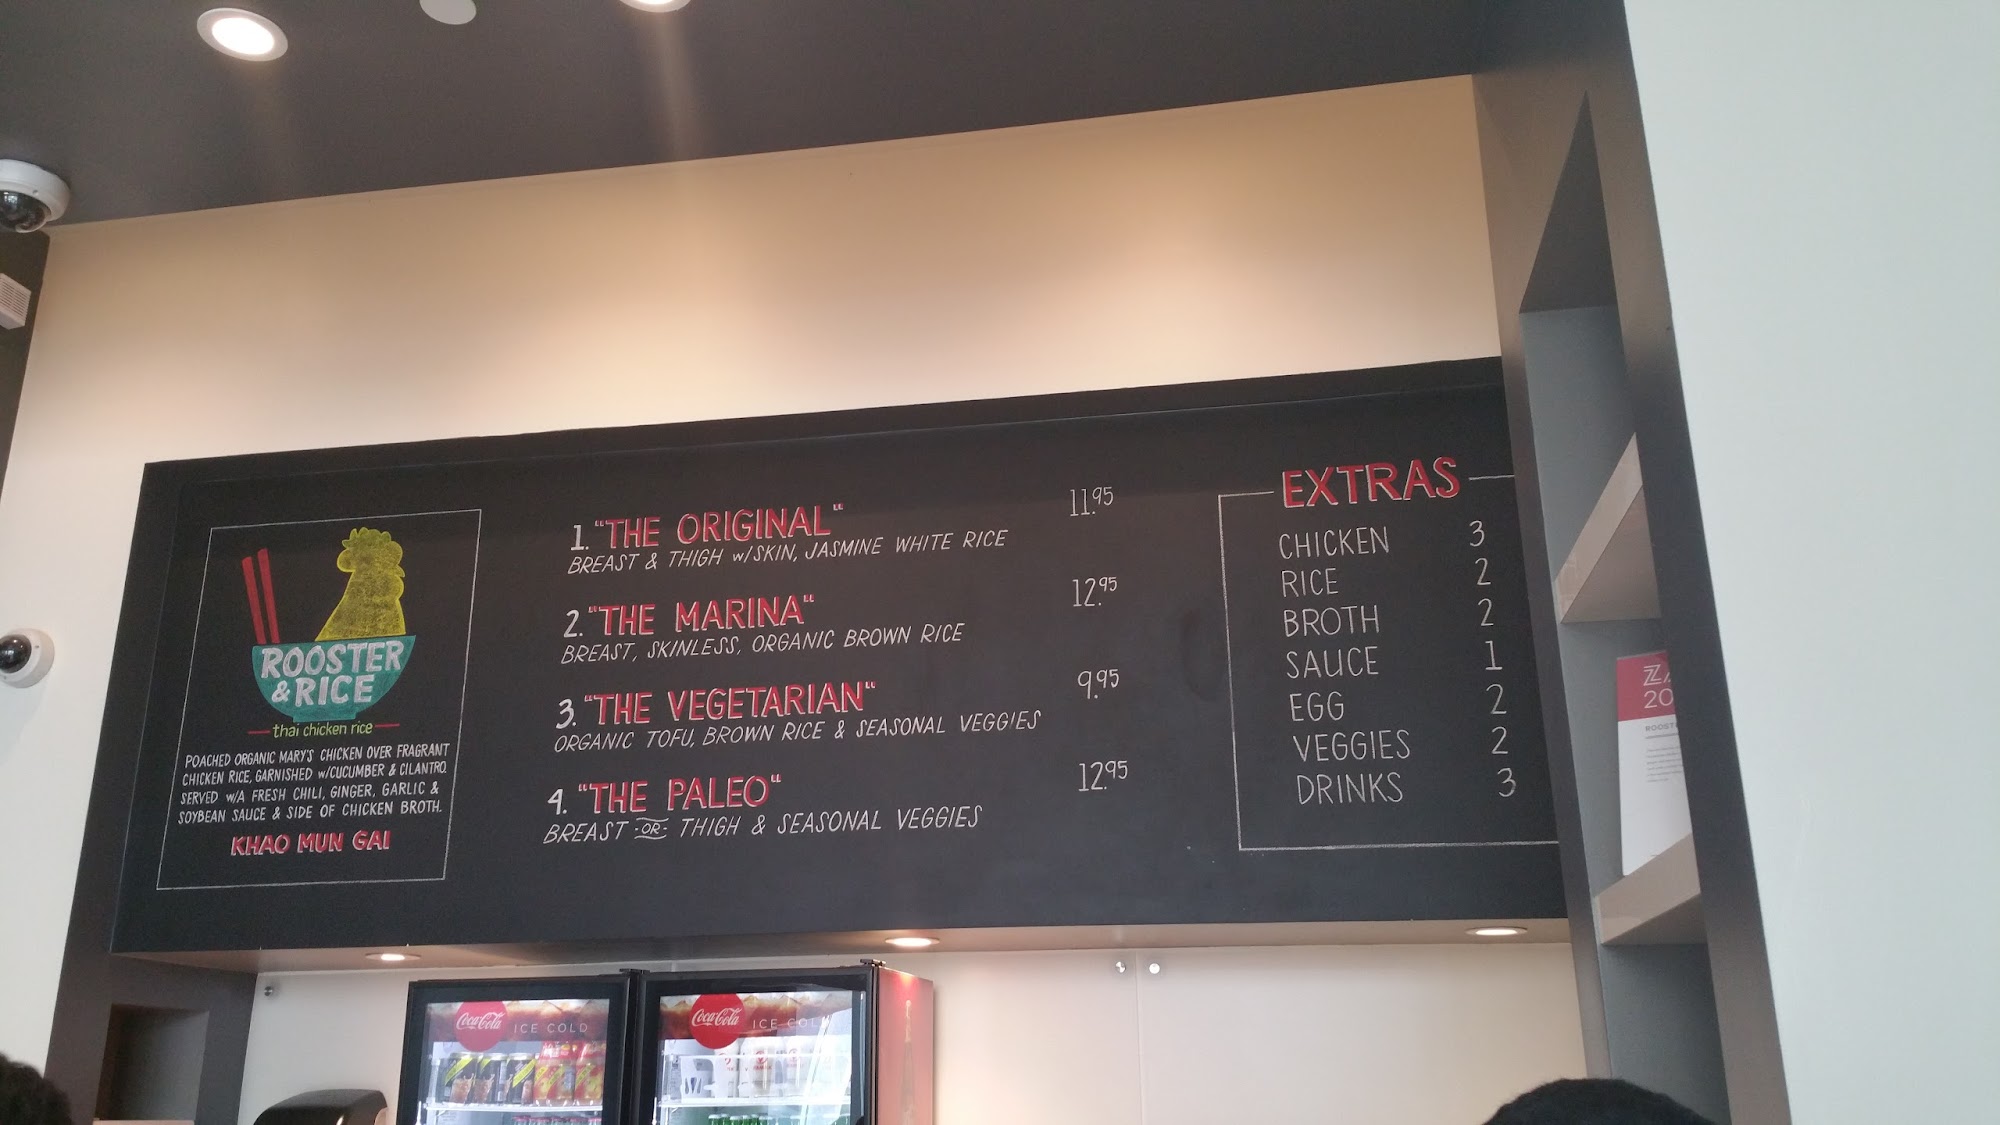 ROOSTER
& RICE
thai chicken rice
POACHED ORGANIC MARY'S CHICKEN OVER FRAGRANT
CHICKEN RICE, GARNISHED w/CUCUMBER & CILANTRO.
SERVED w/A FRESH CHILI, GINGER, GARLIC &
SOYBEAN SAUCE & SIDE OF CHICKEN BROTH.
KHAO MUN GAI
1. "THE ORIGINAL" 11.95
BREAST & THIGH w/SKIN, JASMINE WHITE RICE
2. "THE MARINA" 12.95
BREAST, SKINLESS, ORGANIC BROWN RICE
3. "THE VEGETARIAN" 9.95
ORGANIC TOFU, BROWN RICE & SEASONAL VEGGIES
4. "THE PALEO" 12.95
BREAST OR THIGH & SEASONAL VEGGIES
EXTRAS
CHICKEN 3
RICE 2
BROTH 2
SAUCE 1
EGG 2
VEGGIES 2
DRINKS 3
Coca-Cola ICE COLD
Coca-Cola ICE COLD
20